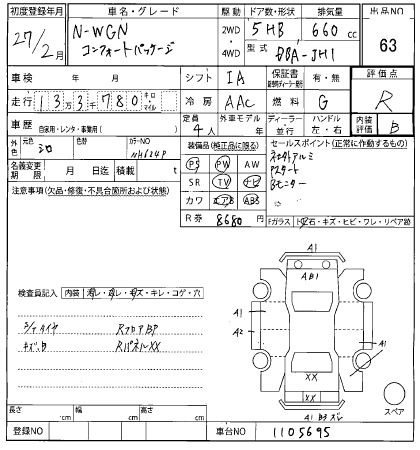 初度登録年月 車名・グレード 駆動 ドア数・形状 排気量 出品NO
27/2月 N-WGN コンフォートパッケージ 2WD 4WD 5HB 660cc 63
型式 DBA-JH1
車検 年 月 シフト IA 保証書 有・無 評価点
走行 133780 キロ マイル 冷房 AAC 燃料 G R
車歴 自家用・レンタ・事業用( ) 定員 4人 外車モデル 年 ディーラー 並行 ハンドル 左・右 内装評価 B
外色 元色 シロ 色替 カラーNO NH624P
装備品(純正品に限る) セールスポイント(正常に作動するもの)
名義変更期限 月 日迄 積載 t
PS PW AW
SR TV ナビ
カワ エアB ABS
Bモニター
注意事項(欠品・修復・不具合箇所および状態)
R券 8680
Fガラス
石・キズ・ヒビ・ワレ・リペア跡
A1
AB1
A1
A2
A1
XX
XX
スペア
検査員記入 内装 キレ・コゲ・穴
RフロアBP
RパネルXX
長さ cm 幅 cm 高さ cm
登録NO 車台NO 1105695